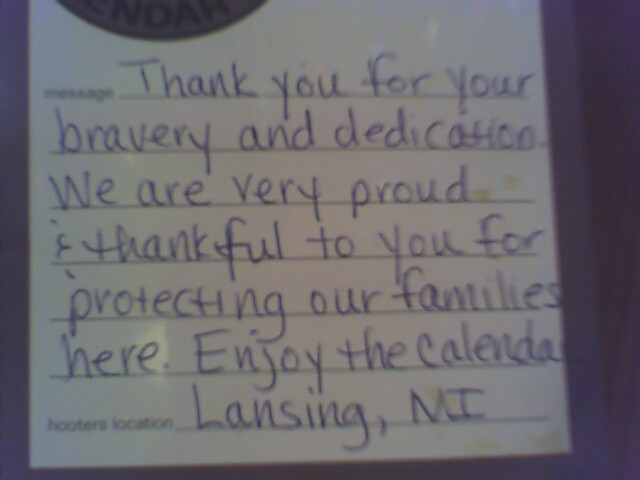 ENDAR
message Thank you for your
bravery and dedication.
We are very proud
& thankful to you for
protecting our families
here. Enjoy the Calenda
hooters location Lansing, MI